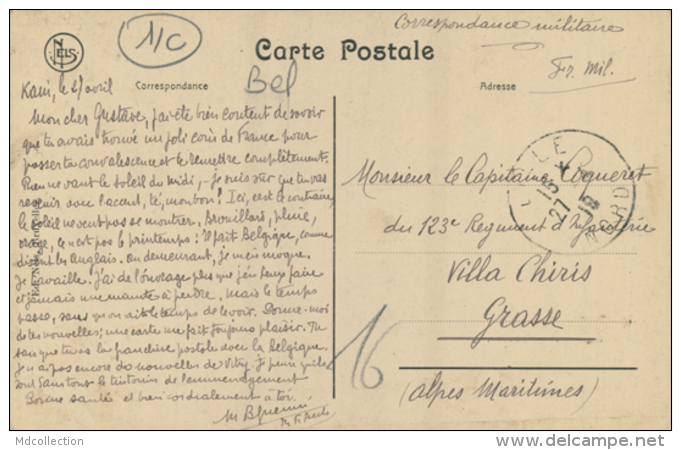 Correspondance militaire
11C
NELS
Carte Postale
Fr. Mil.
Correspondance
Bel
Adresse
le 27 avril
Mon cher Gustave, j'ai été bien content de savoir
que tu avais trouvé un joli coin de France pour
passer ta convalescence et te remettre complètement.
Rien ne vaut le soleil du midi, - je suis sûr que tu vas
revenir avec l'accent, té, mon bon! Ici, c'est le contraire,
le soleil ne veut pas se montrer. Brouillard, pluie,
ce n'est pas le printemps! Il fait Belgique, comme
disent les Anglais. Au demeurant, je m'en moque.
Je travaille. J'ai de l'ouvrage plus que j'en peux faire
et jamais une minute à perdre. Mais le temps
passe, sans qu'on ait le temps de le voir. Donne-moi
de tes nouvelles; une carte me fait toujours plaisir. Tu
sais que tu as la franchise postale avec la Belgique.
Je n'ai pas encore de nouvelles de Vitry. Je pense qu'ils
sont dans tous les de l'emménagement
Bonne santé et bien cordialement à toi.
Monsieur le Capitaine Coqueret
du 123e Regiment d'Infanterie
Villa Chiris
Grasse
(Alpes Maritimes)
LILLE
15
27
NORD
16
Mdcollection
www.delcampe.net